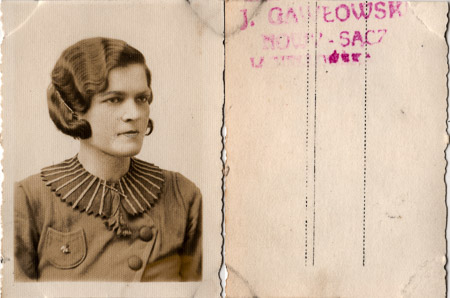 J. GAWŁOWSKI
NOWY-SĄCZ